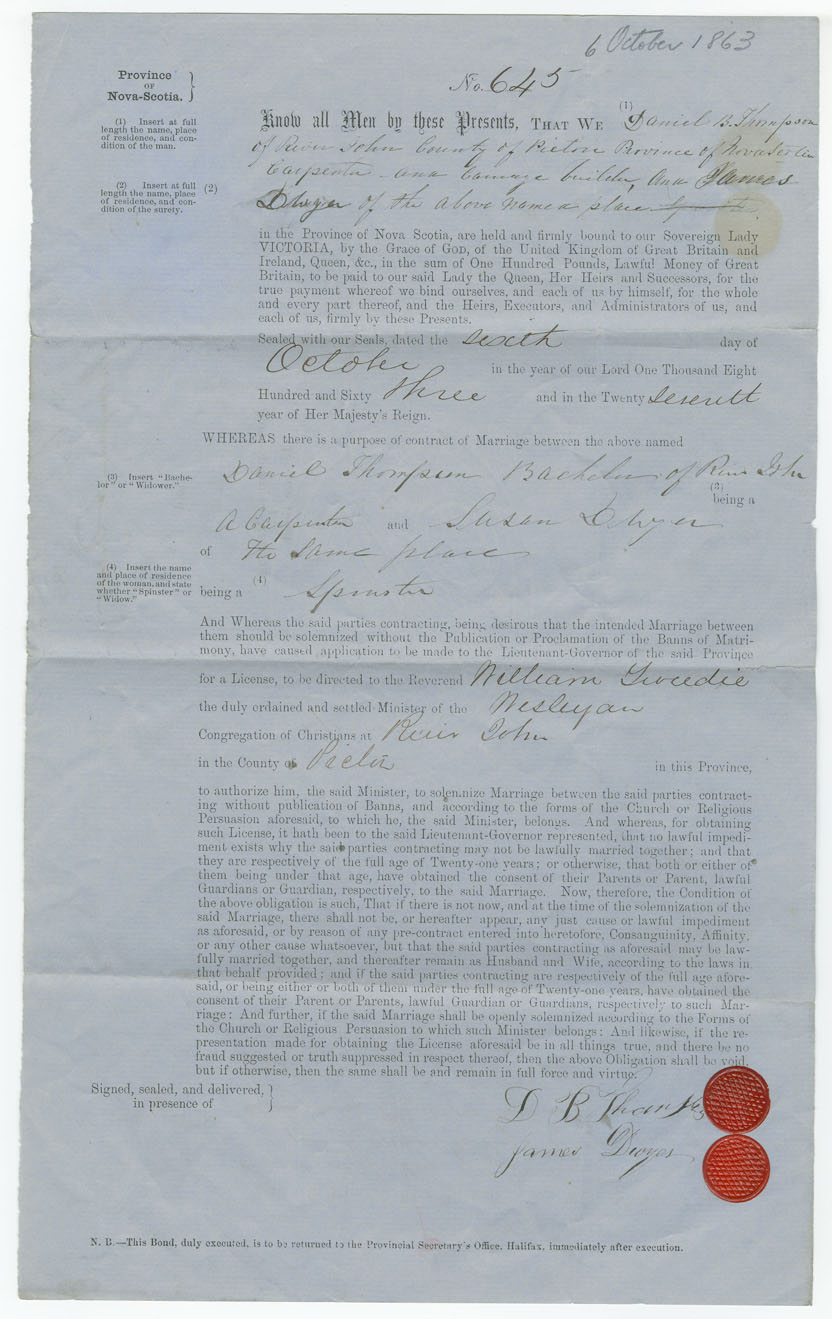 6 October 1863
Province
OF
Nova-Scotia.
No. 645
(1) Insert at full
length the name, place
of residence, and con-
dition of the man.
(1)
Know all Men by these Presents, THAT WE Daniel B. Thompson
of River John County of Pictou Province of Nova Scotia
(2) Insert at full
length the name, place
of residence, and con-
dition of the surety.
Carpenter and Carriage builder, and James
(2) Dwyer of the above named place
in the Province of Nova Scotia, are held and firmly bound to our Sovereign Lady
VICTORIA, by the Grace of GOD, of the United Kingdom of Great Britain and
Ireland, Queen, &c., in the sum of One Hundred Pounds, Lawful Money of Great
Britain, to be paid to our said Lady the Queen, Her Heirs and Successors, for the
true payment whereof we bind ourselves, and each of us by himself, for the whole
and every part thereof, and the Heirs, Executors, and Administrators of us, and
each of us, firmly by these Presents.
Sealed with our Seals, dated the sixth day of
October in the year of our Lord One Thousand Eight
Hundred and Sixty three and in the Twenty seventh
year of Her Majesty's Reign.
WHEREAS there is a purpose of contract of Marriage between the above named
(3) Insert "Bache-
lor" or "Widower."
Daniel Thompson Bachelor of River John
(3)
being a
A Carpenter and Susan Dwyer
of The Same place
(4) Insert the name
and place of residence
of the woman, and state
whether "Spinster" or
"Widow."
(4)
being a Spinster
And Whereas the said parties contracting, being desirous that the intended Marriage between
them should be solemnized without the Publication or Proclamation of the Banns of Matri-
mony, have caused application to be made to the Lieutenant-Governor of the said Province
for a License, to be directed to the Reverend William Tweedie
the duly ordained and settled Minister of the Wesleyan
Congregation of Christians at River John
in the County of Pictou in this Province,
to authorize him, the said Minister, to solemnize Marriage between the said parties contract-
ing without publication of Banns, and according to the forms of the Church or Religious
Persuasion aforesaid, to which he, the said Minister, belongs. And whereas, for obtaining
such License, it hath been to the said Lieutenant-Governor represented, that no lawful impedi-
ment exists why the said parties contracting may not be lawfully married together; and that
they are respectively of the full age of Twenty-one years; or otherwise, that both or either of
them being under that age, have obtained the consent of their Parents or Parent, lawful
Guardians or Guardian, respectively, to the said Marriage. Now, therefore, the Condition of
the above obligation is such, That if there is not now, and at the time of the solemnization of the
said Marriage, there shall not be, or hereafter appear, any just cause or lawful impediment
as aforesaid, or by reason of any pre-contract entered into heretofore, Consanguinity, Affinity,
or any other cause whatsoever, but that the said parties contracting as aforesaid may be law-
fully married together, and thereafter remain as Husband and Wife, according to the laws in
that behalf provided; and if the said parties contracting are respectively of the full age afore-
said, or being either or both of them under the full age of Twenty-one years, have obtained the
consent of their Parent or Parents, lawful Guardian or Guardians, respectively to such Mar-
riage: And further, if the said Marriage shall be openly solemnized according to the Forms of
the Church or Religious Persuasion to which such Minister belongs: And likewise, if the re-
presentation made for obtaining the License aforesaid be in all things true, and there be no
fraud suggested or truth suppressed in respect thereof, then the above Obligation shall be void,
but if otherwise, then the same shall be and remain in full force and virtue.
Signed, sealed, and delivered,
in presence of
D B Thompson
James Dwyer
N. B.—This Bond, duly executed, is to be returned to the Provincial Secretary's Office, Halifax, immediately after execution.